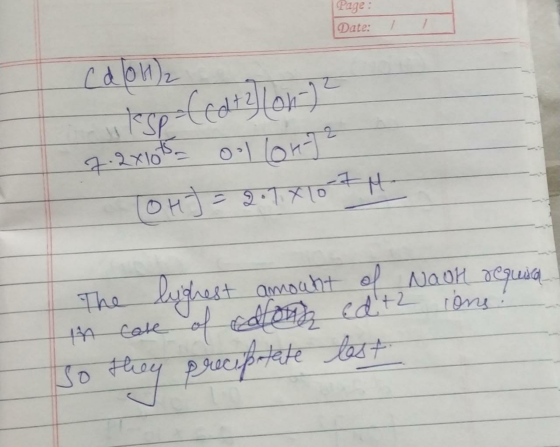 Page:
Date: / /
Cd(OH)2
Ksp = (Cd+2](OH-)²
7.2×10-15 = 0.1 [OH-]²
[OH-] = 2.7×10-7 M.
The highest amount of NaOH required
in case of Cd+2 ions.
So they precipitate last.